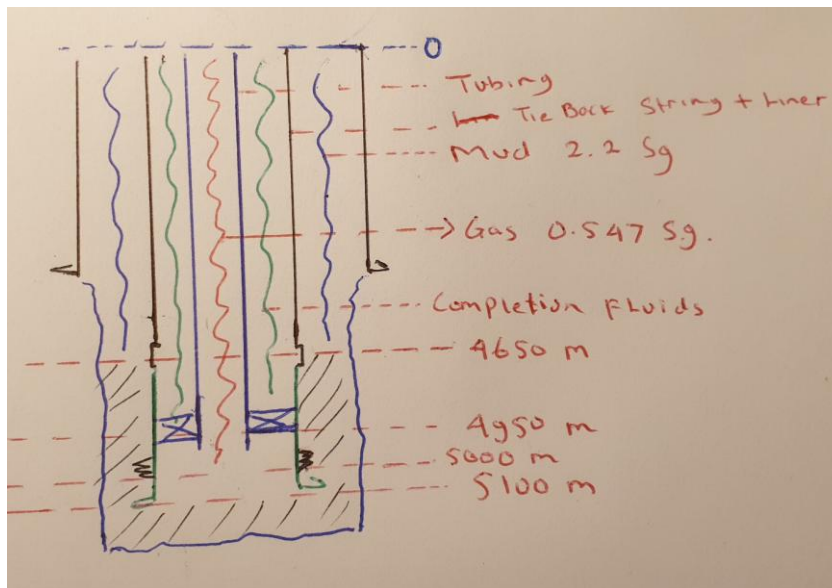 0
Tubing
Tie Back String + Liner
Mud 2.2 Sg
Gas 0.547 Sg.
Completion Fluids
4650 m
4950 m
5000 m
5100 m